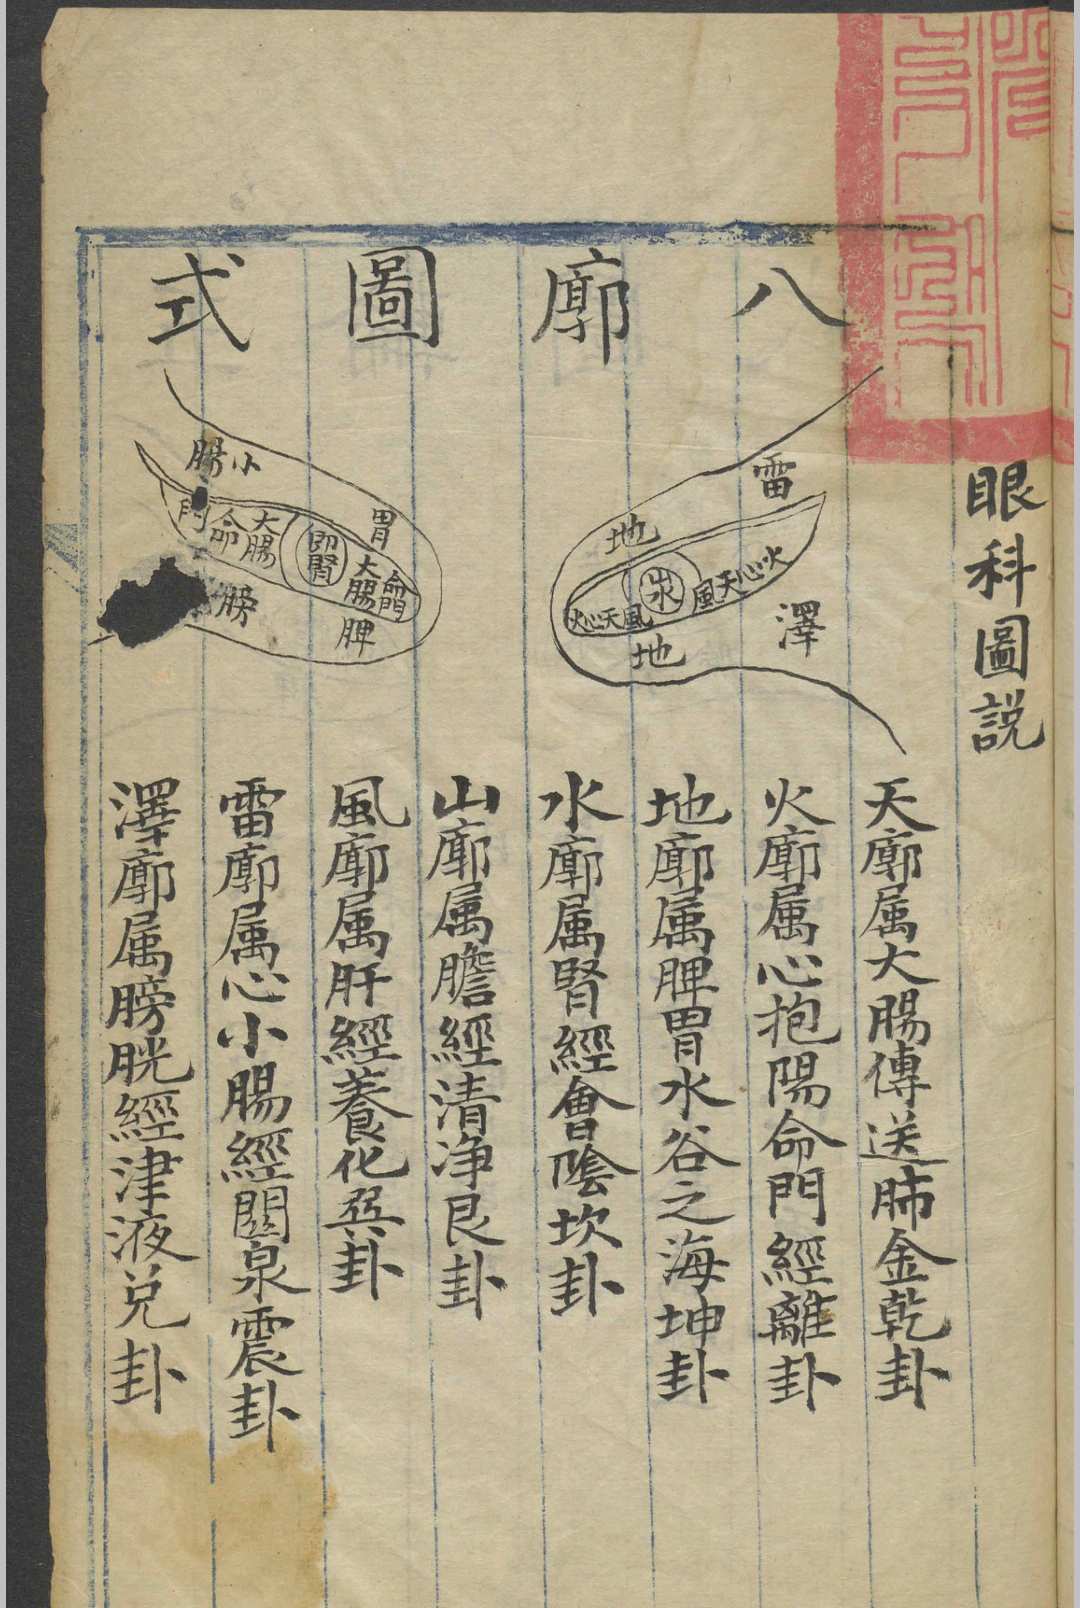 眼科圖説
八廓圖式
雷
地
火心天風
水
風天心火
地
澤
小腸
胃
門命大腸
腎
大腸命門
膀
脾
天廓属大腸傳送肺金乾卦
火廓属心抱陽命門經離卦
地廓属脾胃水谷之海坤卦
水廓属腎經會陰坎卦
山廓属膽經清净艮卦
風廓属肝經養化巽卦
雷廓属心小腸經關泉震卦
澤廓属膀胱經津液兑卦